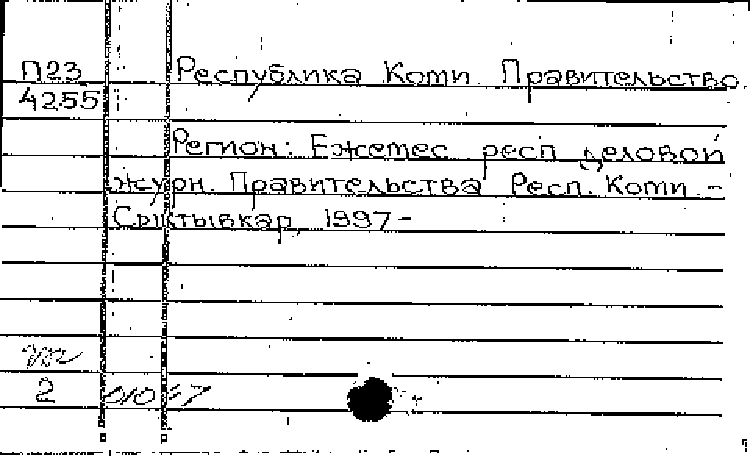 П23 Республика Коми. Правительство.
4255
Регион: Ежемес. респ. деловой
журн. Правительства Респ. Коми. -
Сыктывкар, 1997-
2